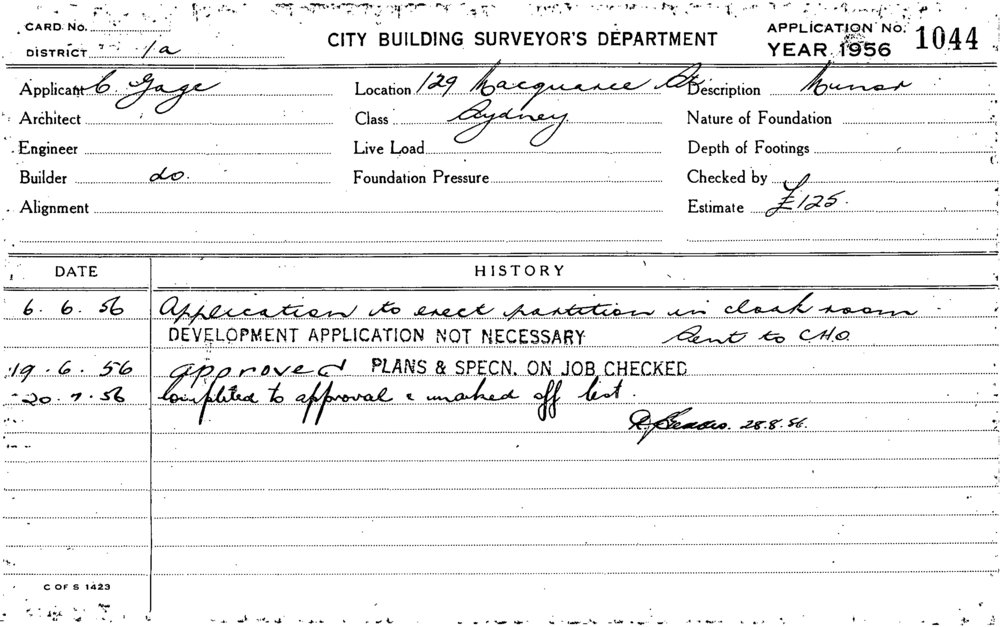 CARD No.
DISTRICT 1a
CITY BUILDING SURVEYOR'S DEPARTMENT
APPLICATION No. 1044
YEAR 1956
Applicant C. Gage
Location 129 Macquarie St.
Description Minor
Architect
Class Sydney
Nature of Foundation
Engineer
Live Load
Depth of Footings
Builder do.
Foundation Pressure
Checked by
Alignment
Estimate £125.
DATE
HISTORY
6. 6. 56 Application to erect partition in cloak room
DEVELOPMENT APPLICATION NOT NECESSARY Sent to C.H.O.
19.6.56 approved PLANS & SPECN. ON JOB CHECKED
20.7.56 Completed to approval & marked off list.
28.8.56.
C OF S 1423